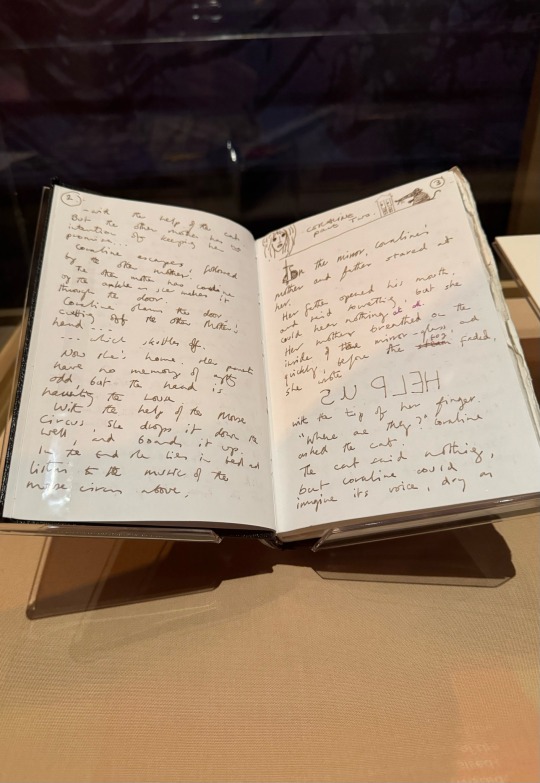 2
- with the help of the cat.
But the other mother has no
intention of keeping her
promise...
Coraline escapes, followed
by the other mother.
The other mother has Coraline
by the ankle in, ice when is
through the door.
Coraline slams the door
cutting off the other mother's
hand....
... which skitters off.
Now she's home, her parents
have no memory of
odd but the hand is
haunting the house
With the help of the Mouse
Circus, she drops it down the
well, and boards it up.
In the end she lies in bed and
listens to the music of the
mouse circus above.
3
CORALINE
PART TWO.
In the mirror, Coraline's
mother and father stared at
her.
Her father opened his mouth
and said something, but she
could hear nothing at all.
Her mother breathed on the
inside of the mirror glass, and
quickly, before the fog faded,
she wrote
HELP US
with the tip of her finger.
"Where are they?" Coraline
asked the cat.
The cat said nothing,
but Coraline could
imagine its voice, dry as